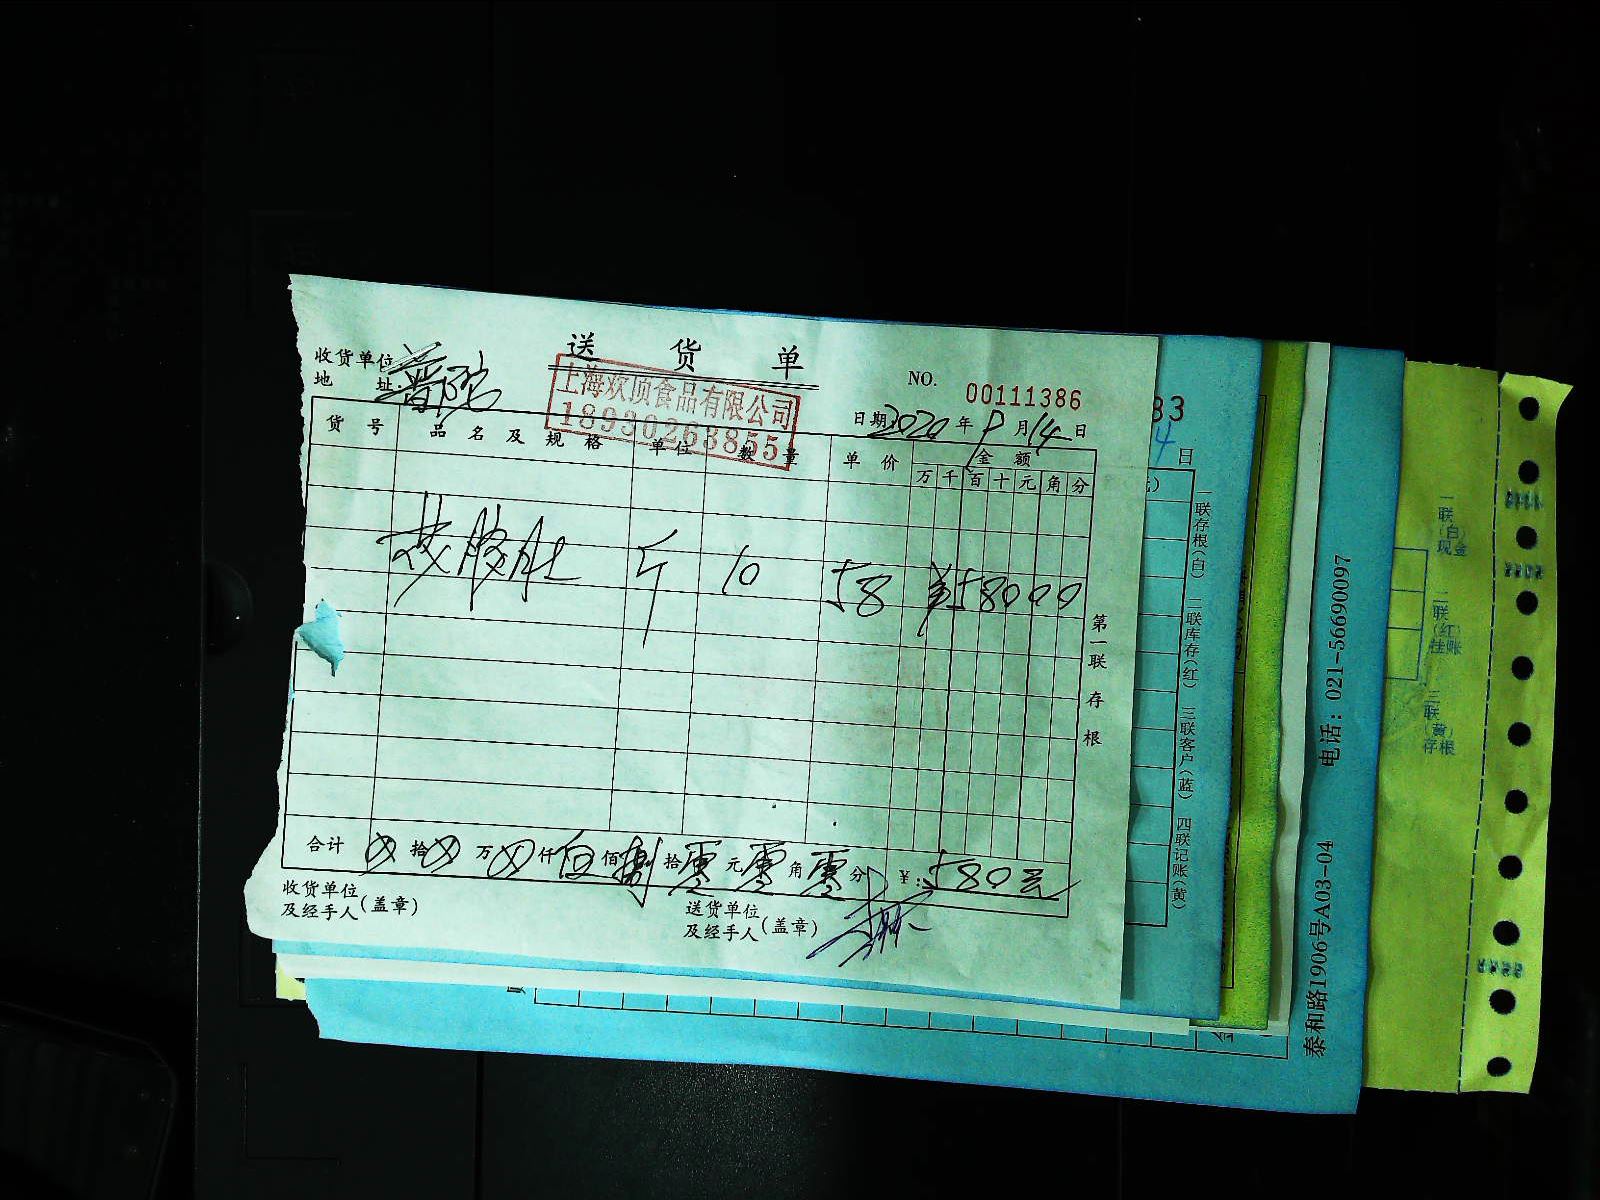 送 货 单
收货单位
地 址: 普陀
上海欢顶食品有限公司
18930263855
NO. 00111386
日期 2020 年 9 月 14 日
货 号 品 名 及 规 格 单位 数 量 单 价 金 额
万 千 百 十 元 角 分
斤 10 58 ¥58000
第一联 存根
合计 拾 万 仟 佰 捌 拾 零 元 零 角 零 分 ¥: 580元
收货单位
及经手人(盖章)
送货单位
及经手人(盖章)
83
4 日
一联存根(白) 二联库存(红) 三联客户(蓝) 四联记账(黄)
泰和路1906号A03-04 电话: 021-56690097
一联(白)现金
二联(红)挂账
三联(黄)存根